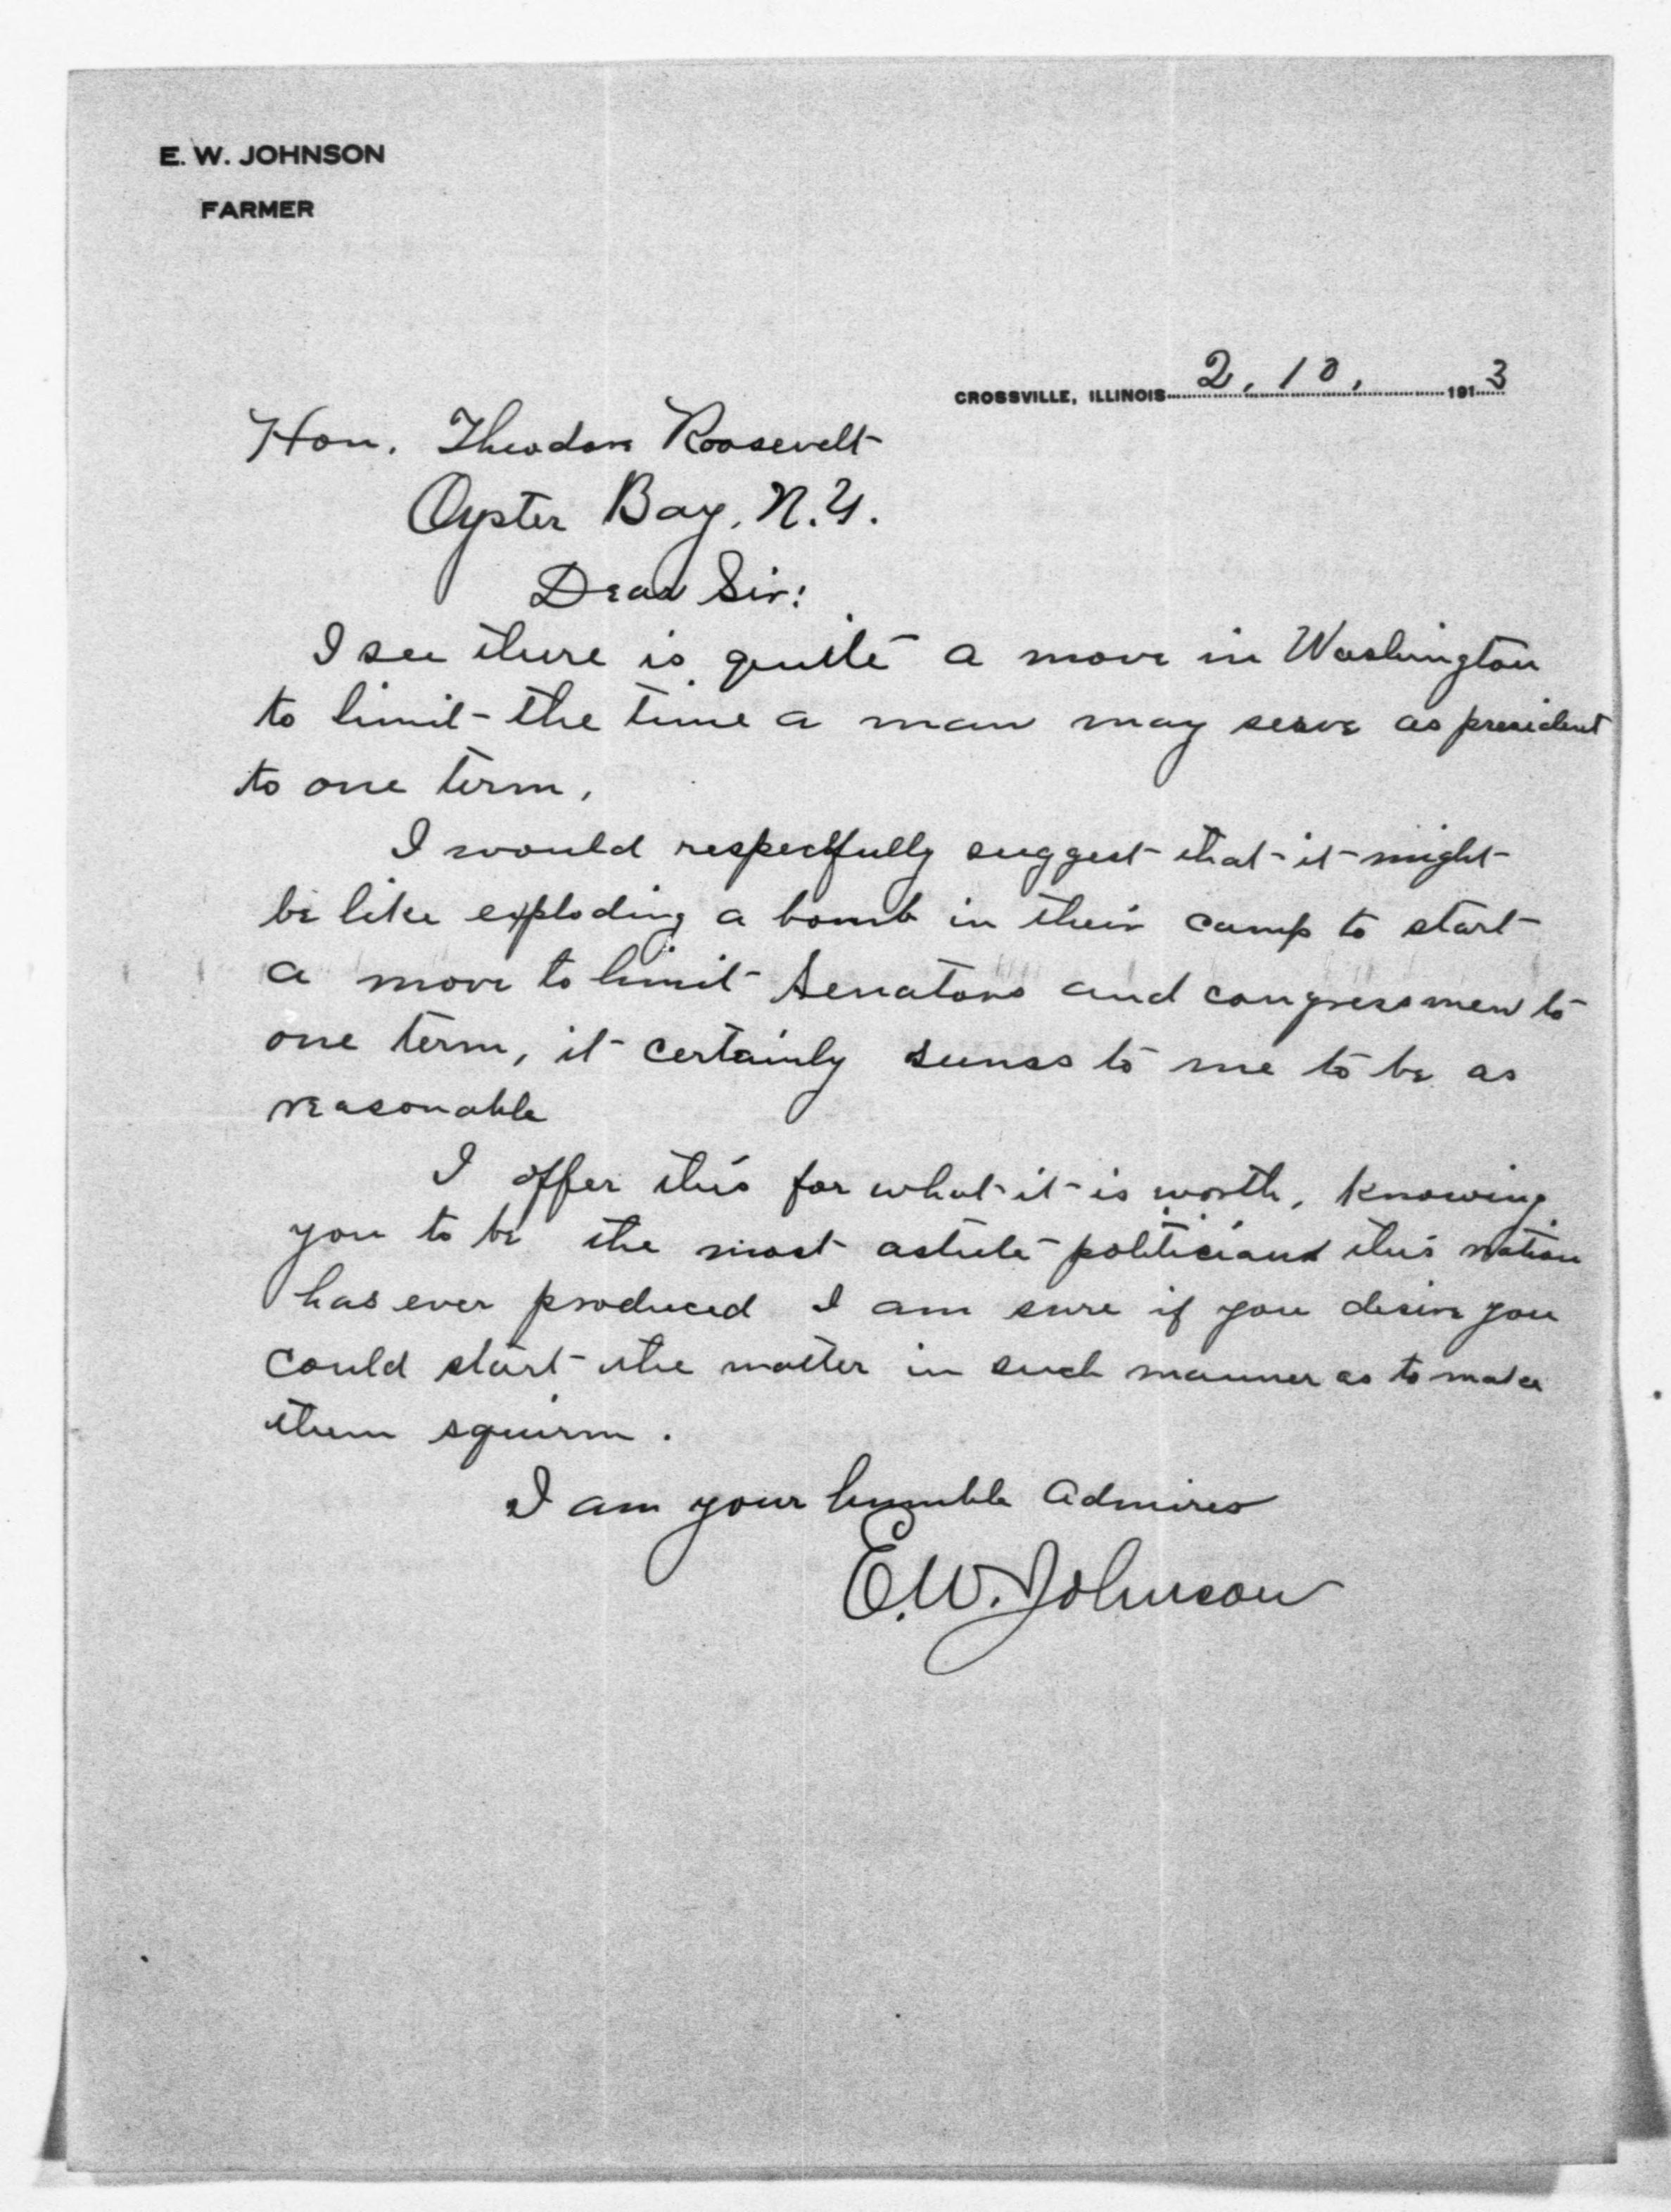 E. W. JOHNSON
FARMER
CROSSVILLE, ILLINOIS 2, 10, 1913
Hon. Theodore Roosevelt
Oyster Bay, N.Y.
Dear Sir:
I see there is quite a move in Washington
to limit the time a man may serve as president
to one term.
I would respectfully suggest that it might
be like exploding a bomb in their camp to start
a move to limit Senators and congressmen to
one term, it certainly seems to me to be as
reasonable
I offer this for what it is worth, knowing
you to be the most astute politician this nation
has ever produced I am sure if you desire you
could start the matter in such manner as to make
them squirm.
I am your humble admirer
E.W. Johnson